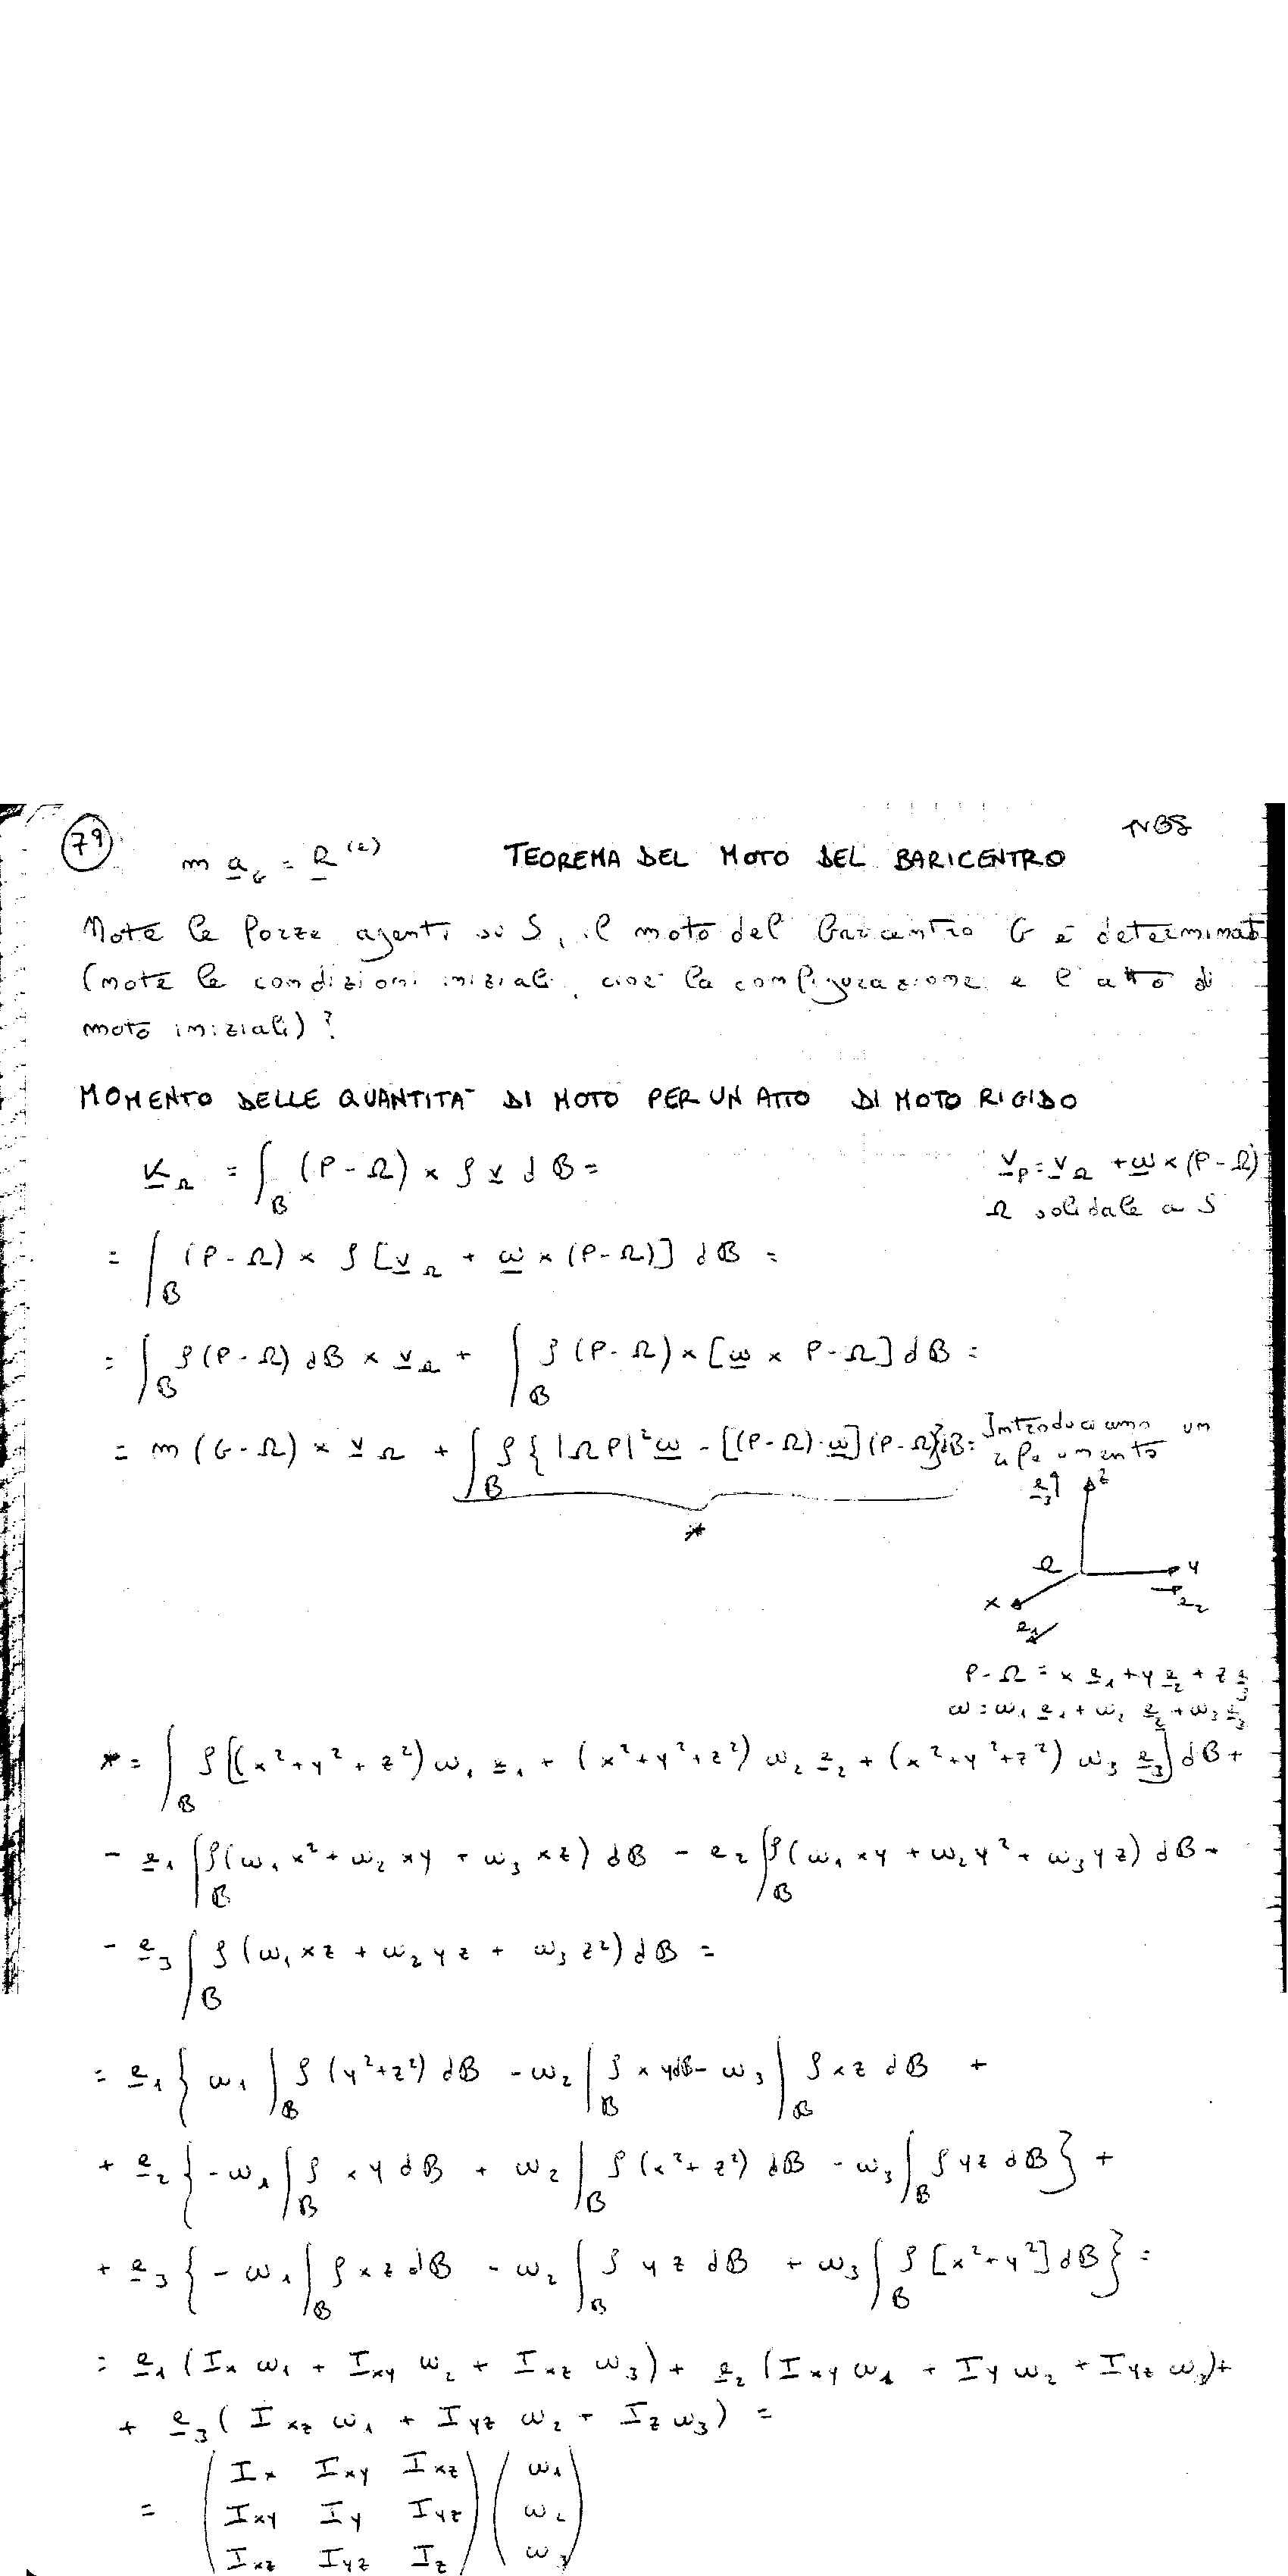 79
m a_G = R^(e) TEOREMA DEL MOTO DEL BARICENTRO
Note le forze agenti su S, il moto del baricentro G è determinat
(note le condizioni iniziali, cioè la configurazione e l'atto di
moto iniziali)?
MOMENTO DELLE QUANTITA' DI MOTO PER UN ATTO DI MOTO RIGIDO
K_Ω = ∫_B (P-Ω) × ρ v dB = v_P = v_Ω + ω × (P-Ω)
Ω solidale a S
= ∫_B (P-Ω) × ρ [v_Ω + ω × (P-Ω)] dB =
= ∫_B ρ (P-Ω) dB × v_Ω + ∫_B ρ (P-Ω) × [ω × P-Ω] dB =
= m (G-Ω) × v_Ω + ∫_B ρ { |ΩP|² ω - [(P-Ω)·ω] (P-Ω)} dB = Introduciamo un
riferimento
*
e_3 z
Ω y
e_2
x
e_1
P-Ω = x e_1 + y e_2 + z e_3
ω = ω_1 e_1 + ω_2 e_2 + ω_3 e_3
* = ∫_B ρ [(x²+y²+z²) ω_1 e_1 + (x²+y²+z²) ω_2 e_2 + (x²+y²+z²) ω_3 e_3] dB +
- e_1 ∫_B ρ (ω_1 x² + ω_2 xy + ω_3 xz) dB - e_2 ∫_B ρ (ω_1 xy + ω_2 y² + ω_3 yz) dB -
- e_3 ∫_B ρ (ω_1 xz + ω_2 yz + ω_3 z²) dB =
= e_1 { ω_1 ∫_B ρ (y²+z²) dB - ω_2 ∫_B ρ xy dB - ω_3 ∫_B ρ xz dB +
+ e_2 { -ω_1 ∫_B ρ xy dB + ω_2 ∫_B ρ (x²+z²) dB - ω_3 ∫_B ρ yz dB } +
+ e_3 { -ω_1 ∫_B ρ xz dB - ω_2 ∫_B ρ yz dB + ω_3 ∫_B ρ [x²+y²] dB } =
= e_1 (I_x ω_1 + I_xy ω_2 + I_xz ω_3) + e_2 (I_xy ω_1 + I_y ω_2 + I_yz ω_3) +
+ e_3 (I_xz ω_1 + I_yz ω_2 + I_z ω_3) =
(I_x I_xy I_xz) (ω_1)
= (I_xy I_y I_yz) (ω_2)
(I_xz I_yz I_z) (ω_3)